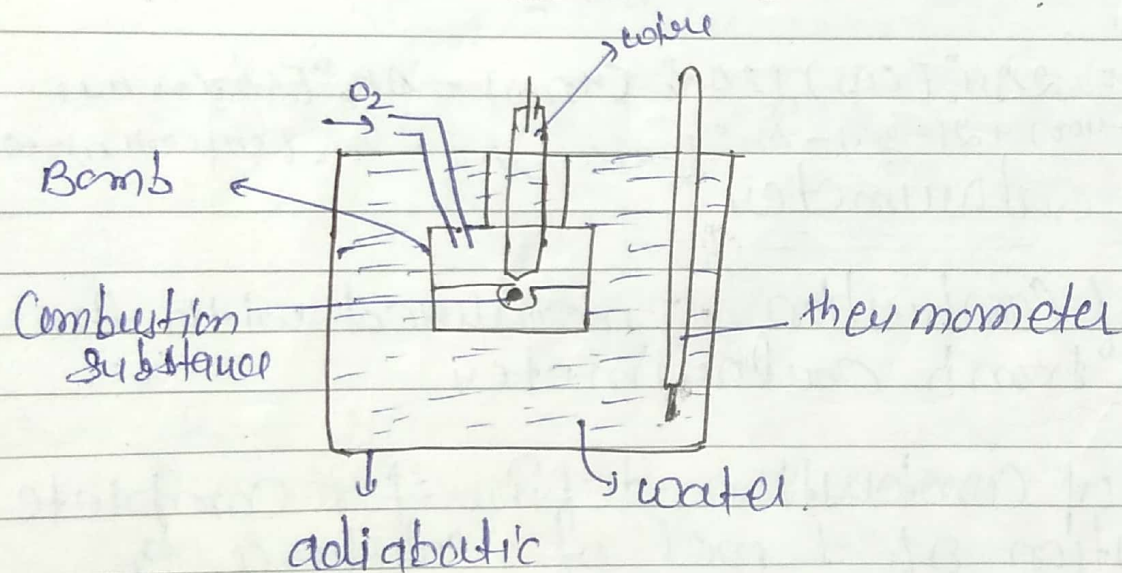 wire
O2
Bomb
Combustion
substance
thermometer
water.
adiabatic